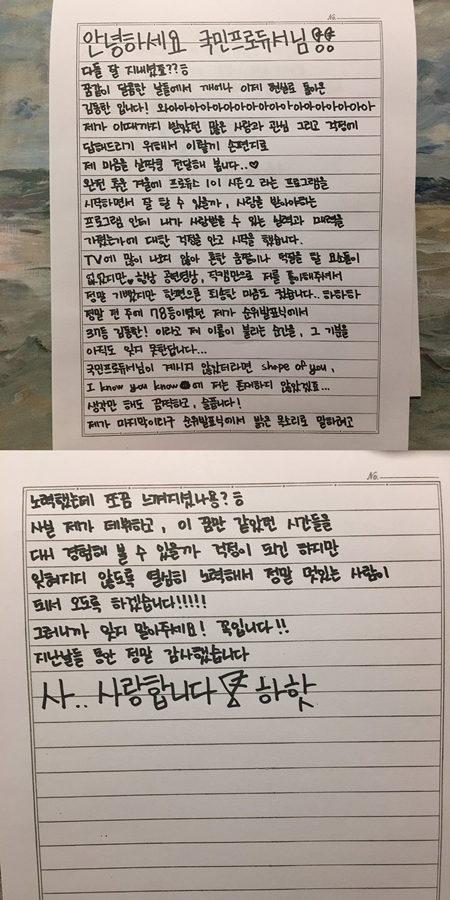 No.
안녕하세요 국민프로듀서님
다들 잘 지내셨죠??ㅎ
꿈같이 달콤한 날들에서 깨어나 이제 현실로 돌아온
김동한 입니다! 와아아아아아아아아아아아아아아아아아
제가 이때까지 받았던 많은 사랑과 관심 그리고 걱정에
답해드리기 위해서 이렇게 손편지로
제 마음을 살짝쿵 전달해 봅니다..♡
완전 추운 겨울에 프로듀스 101 시즌2 라는 프로그램을
시작하면서 잘 할 수 있을까, 사랑을 받아야하는
프로그램 인데 내가 사랑받을 수 있는 실력과 매력을
가졌는가에 대한 걱정을 안고 시작을 했습니다.
TV에 많이 나오지 않아 흔한 움짤이나 덕질을 할 요소들이
없었지만 항상 공연영상, 직캠만으로 저를 좋아해주셔서
정말 기뻤지만 한편으론 죄송한 마음도 컸습니다.. 하하하
정말 전 주에 78등이였던 제가 순위발표식에서
37등 김동한! 이라고 제 이름이 불리는 순간을, 그 기분을
아직도 잊지 못한답니다...
국민프로듀서님이 계시지 않았더라면 shape of you,
I know you know에 저는 존재하지 않았겠죠...
생각만 해도 끔찍하고, 슬픕니다!
제가 마지막이라구 순위발표식에서 밝은 목소리로 말하려고
No.
노력했는데 또끔 느껴지셨나용?ㅎ
사실 제가 데뷔하고, 이 꿈만 같았던 시간들을
다시 경험해 볼 수 있을까 걱정이 되긴 하지만
잊혀지지 않도록 열심히 노력해서 정말 멋있는 사람이
되서 오도록 하겠습니다!!!!!
그러니까 잊지 말아주세요! 꼭입니다!!
지난날들 동안 정말 감사했습니다
사.. 사랑합니다 하핫